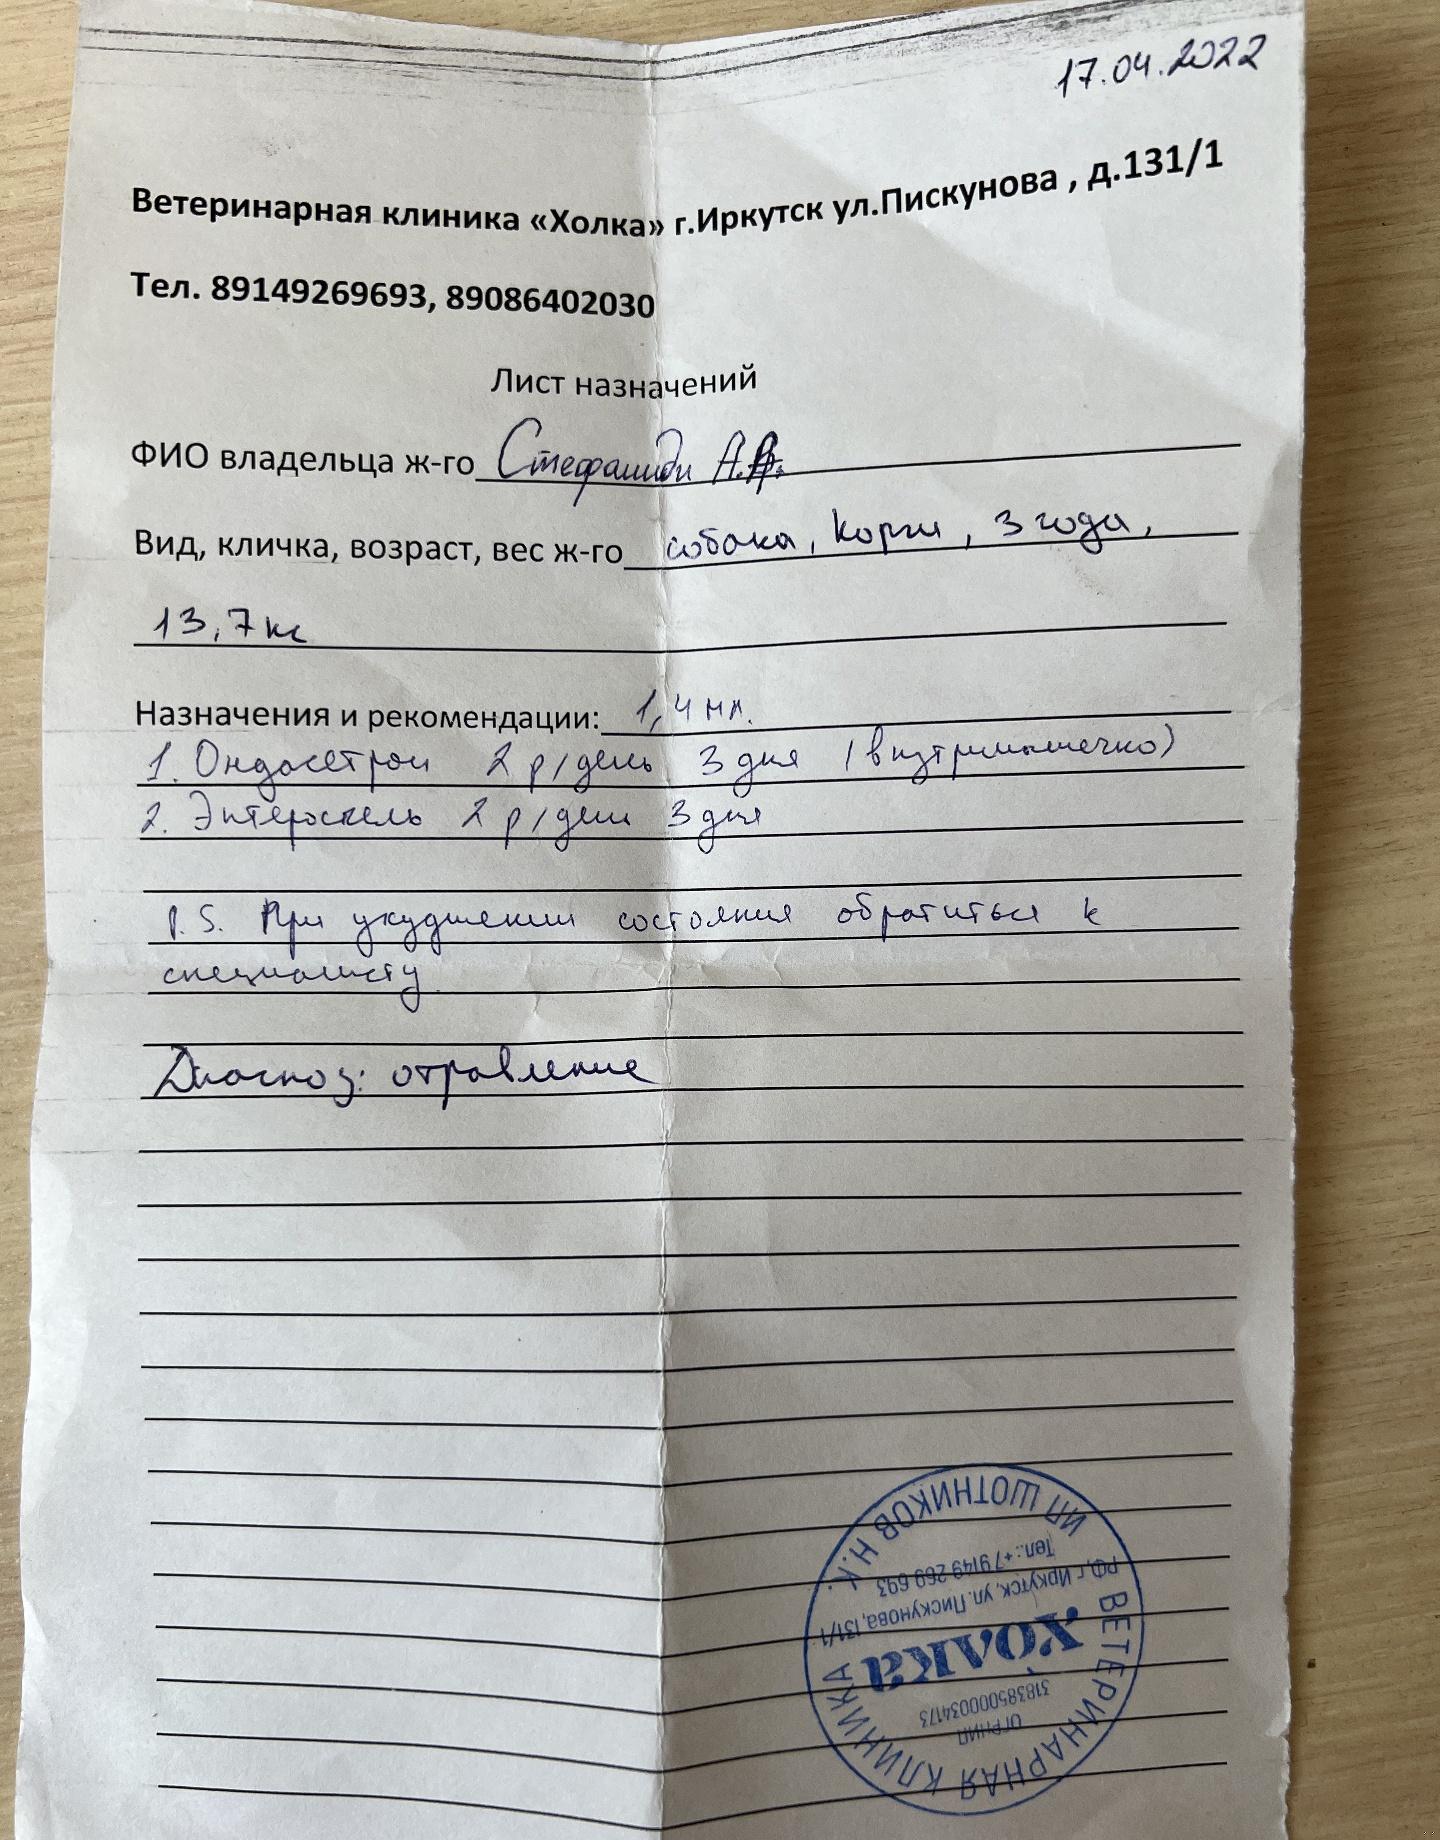 17.04.2022
Ветеринарная клиника «Холка» г.Иркутск ул.Пискунова , д.131/1
Тел. 89149269693, 89086402030
Лист назначений
ФИО владельца ж-го
Вид, кличка, возраст, вес ж-го собака, Корги, 3 года,
13,7 кг
Назначения и рекомендации: 1,4 мл.
1. Ондасетрон 2 р/день 3 дня (внутримышечно)
2. Энтеросгель 2 р/день 3 дня
P.S. При ухудшении состояния обратиться к
специалисту
Диагноз: отравление
ИП ШОТНИКОВ Н.К.
Тел.: +7 9149 269 693
РФ, г. Иркутск, ул. Пискунова, 131/1
ХОЛКА
318385000034173
ОГРНИП
ВЕТЕРИНАРНАЯ КЛИНИКА